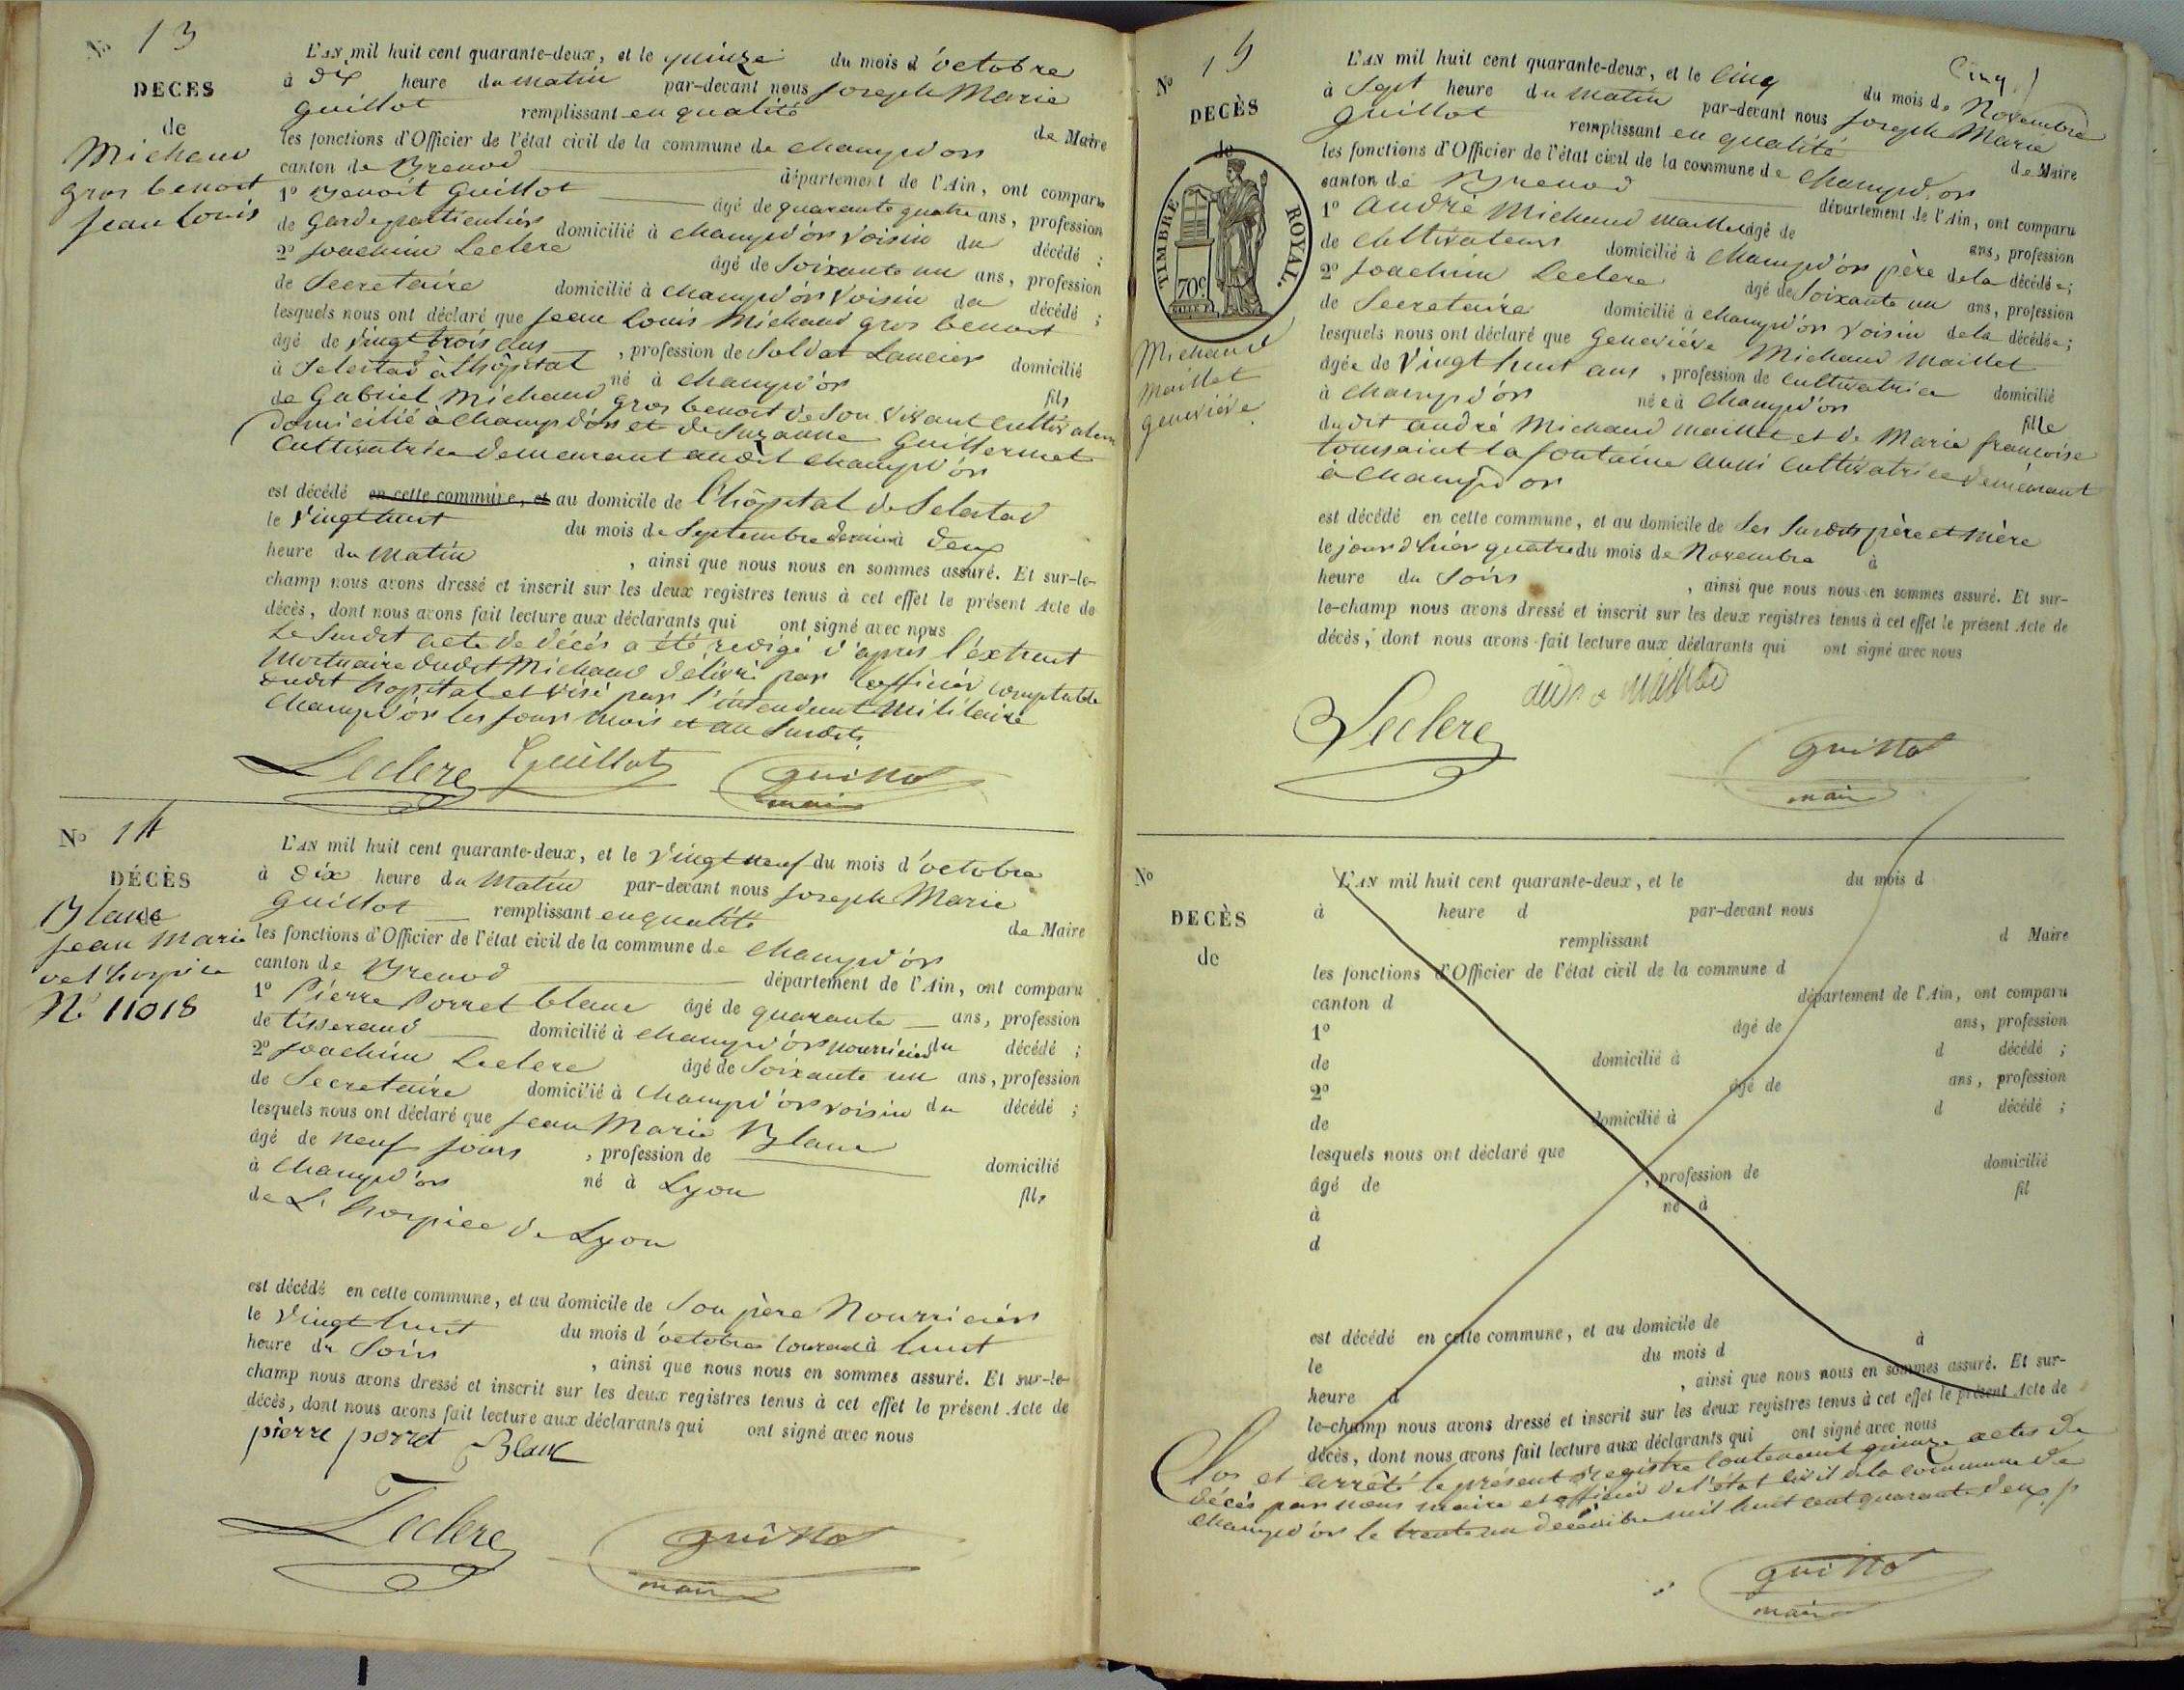 N° 13
DECES
de
Michaud
gros benoit
jean Louis
L'AN mil huit cent quarante-deux, et le quinze du mois d'octobre
à dix heure du matin par-devant nous joseph Marie
guillot remplissant en qualité de Maire
les fonctions d'Officier de l'état civil de la commune de champd'or
canton de Brenod département de l'Ain, ont comparu
1° Benoit Guillot âgé de quarante quatre ans, profession
de Garde particulier domicilié à champd'or voisin du décédé ;
2° joachim Leclerc âgé de Soixante un ans, profession
de Secretaire domicilié à champd'or voisin du décédé ;
lesquels nous ont déclaré que jean Louis Michaud gros benoit
âgé de vingt trois ans , profession de Soldat Lancier domicilié
à Selestad à l'hôpital né à champd'or fils
de Gabriel Michaud gros benoit de son vivant cultivateur
domicilié à champd'or et de Suzanne Guillermet
cultivatrice demeurant audit champd'or
est décédé en cette commune, et au domicile de l'hôpital de Selestad
le vingt huit du mois de Septembre dernier à deux
heure du matin , ainsi que nous nous en sommes assuré. Et sur-le-
champ nous avons dressé et inscrit sur les deux registres tenus à cet effet le présent Acte de
décès, dont nous avons fait lecture aux déclarants qui ont signé avec nous
Le Susdit acte de décés a été redigé d'apres l'éxtrait
mortuaire dudit Michaud délivré par l'officier comptable
dudit hopital et visé par l'intendant Militaire
champd'or les jour mois et an Susdits
Leclerc Guillot guillot
maire
N° 14
DÉCÈS
Blanc
jean Marie
de l'hospice
N° 11018
L'AN mil huit cent quarante-deux, et le vingt neuf du mois d'octobre
à dix heure du matin par-devant nous joseph Marie
guillot remplissant en qualité de Maire
les fonctions d'Officier de l'état civil de la commune de champd'or
canton de Brenod département de l'Ain, ont comparu
1° Pierre Porret blanc âgé de quarante ans, profession
de tisserand domicilié à champd'or nourricier du décédé ;
2° joachim Leclerc âgé de Soixante un ans, profession
de Secretaire domicilié à champd'or voisin du décédé ;
lesquels nous ont déclaré que jean Marie Blanc
âgé de neuf jours , profession de domicilié
à champd'or né à Lyon fils
de L'hospice de Lyon
est décédé en cette commune, et au domicile de Son père Nourricier
le vingt huit du mois d'octobre courand à huit
heure du Soir , ainsi que nous nous en sommes assuré. Et sur-le-
champ nous avons dressé et inscrit sur les deux registres tenus à cet effet le présent Acte de
décès, dont nous avons fait lecture aux déclarants qui ont signé avec nous
pierre porret Blanc
Leclerc guillot
maire
N° 15
DECÈS
de
TIMBRE ROYAL.
70c
Michaud
maillet
geneviéve
cinq
L'AN mil huit cent quarante-deux, et le cinq du mois de Novembre
à Sept heure du matin par-devant nous joseph Marie
guillot remplissant en qualité de Maire
les fonctions d'Officier de l'état civil de la commune de champd'or
canton de Brenod département de l'Ain, ont comparu
1° andré Michaud maillet âgé de ans, profession
de cultivateur domicilié à champd'or père de la décédée ;
2° joachim Leclerc âgé de Soixante un ans, profession
de Secretaire domicilié à champd'or voisin de la décédée ;
lesquels nous ont déclaré que geneviéve Michaud Maillet
âgée de vingt huit ans , profession de cultivatrice domicilié
à champd'or née à champd'or fille
dudit andré Michaud maillet et de Marie françoise
toussaint lafontaine aussi cultivatrice demeurant
à champd'or
est décédé en cette commune, et au domicile de Ses Susdits père et mère
le jour d'hier quatre du mois de Novembre à
heure du Soir , ainsi que nous nous en sommes assuré. Et sur-
le-champ nous avons dressé et inscrit sur les deux registres tenus à cet effet le présent Acte de
décès, dont nous avons fait lecture aux déclarants qui ont signé avec nous
Leclerc guillot
maire
N°
DECÈS
de
L'AN mil huit cent quarante-deux, et le du mois d
à heure d par-devant nous
remplissant d Maire
les fonctions d'Officier de l'état civil de la commune d
canton d département de l'Ain, ont comparu
1° âgé de ans, profession
de domicilié à d décédé ;
2° âgé de ans, profession
de domicilié à d décédé ;
lesquels nous ont déclaré que
âgé de , profession de domicilié
à né à fil
d
est décédé en cette commune, et au domicile de
le du mois d à
heure d , ainsi que nous nous en sommes assuré. Et sur-
le-champ nous avons dressé et inscrit sur les deux registres tenus à cet effet le présent Acte de
décès, dont nous avons fait lecture aux déclarants qui ont signé avec nous
Clos et arrêté le présent registre contenant quinze actes de
décès par nous maire et officier de l'état civil de la commune de
champd'or le trente un décembre mil huit cent quarante deux
guillot
maire